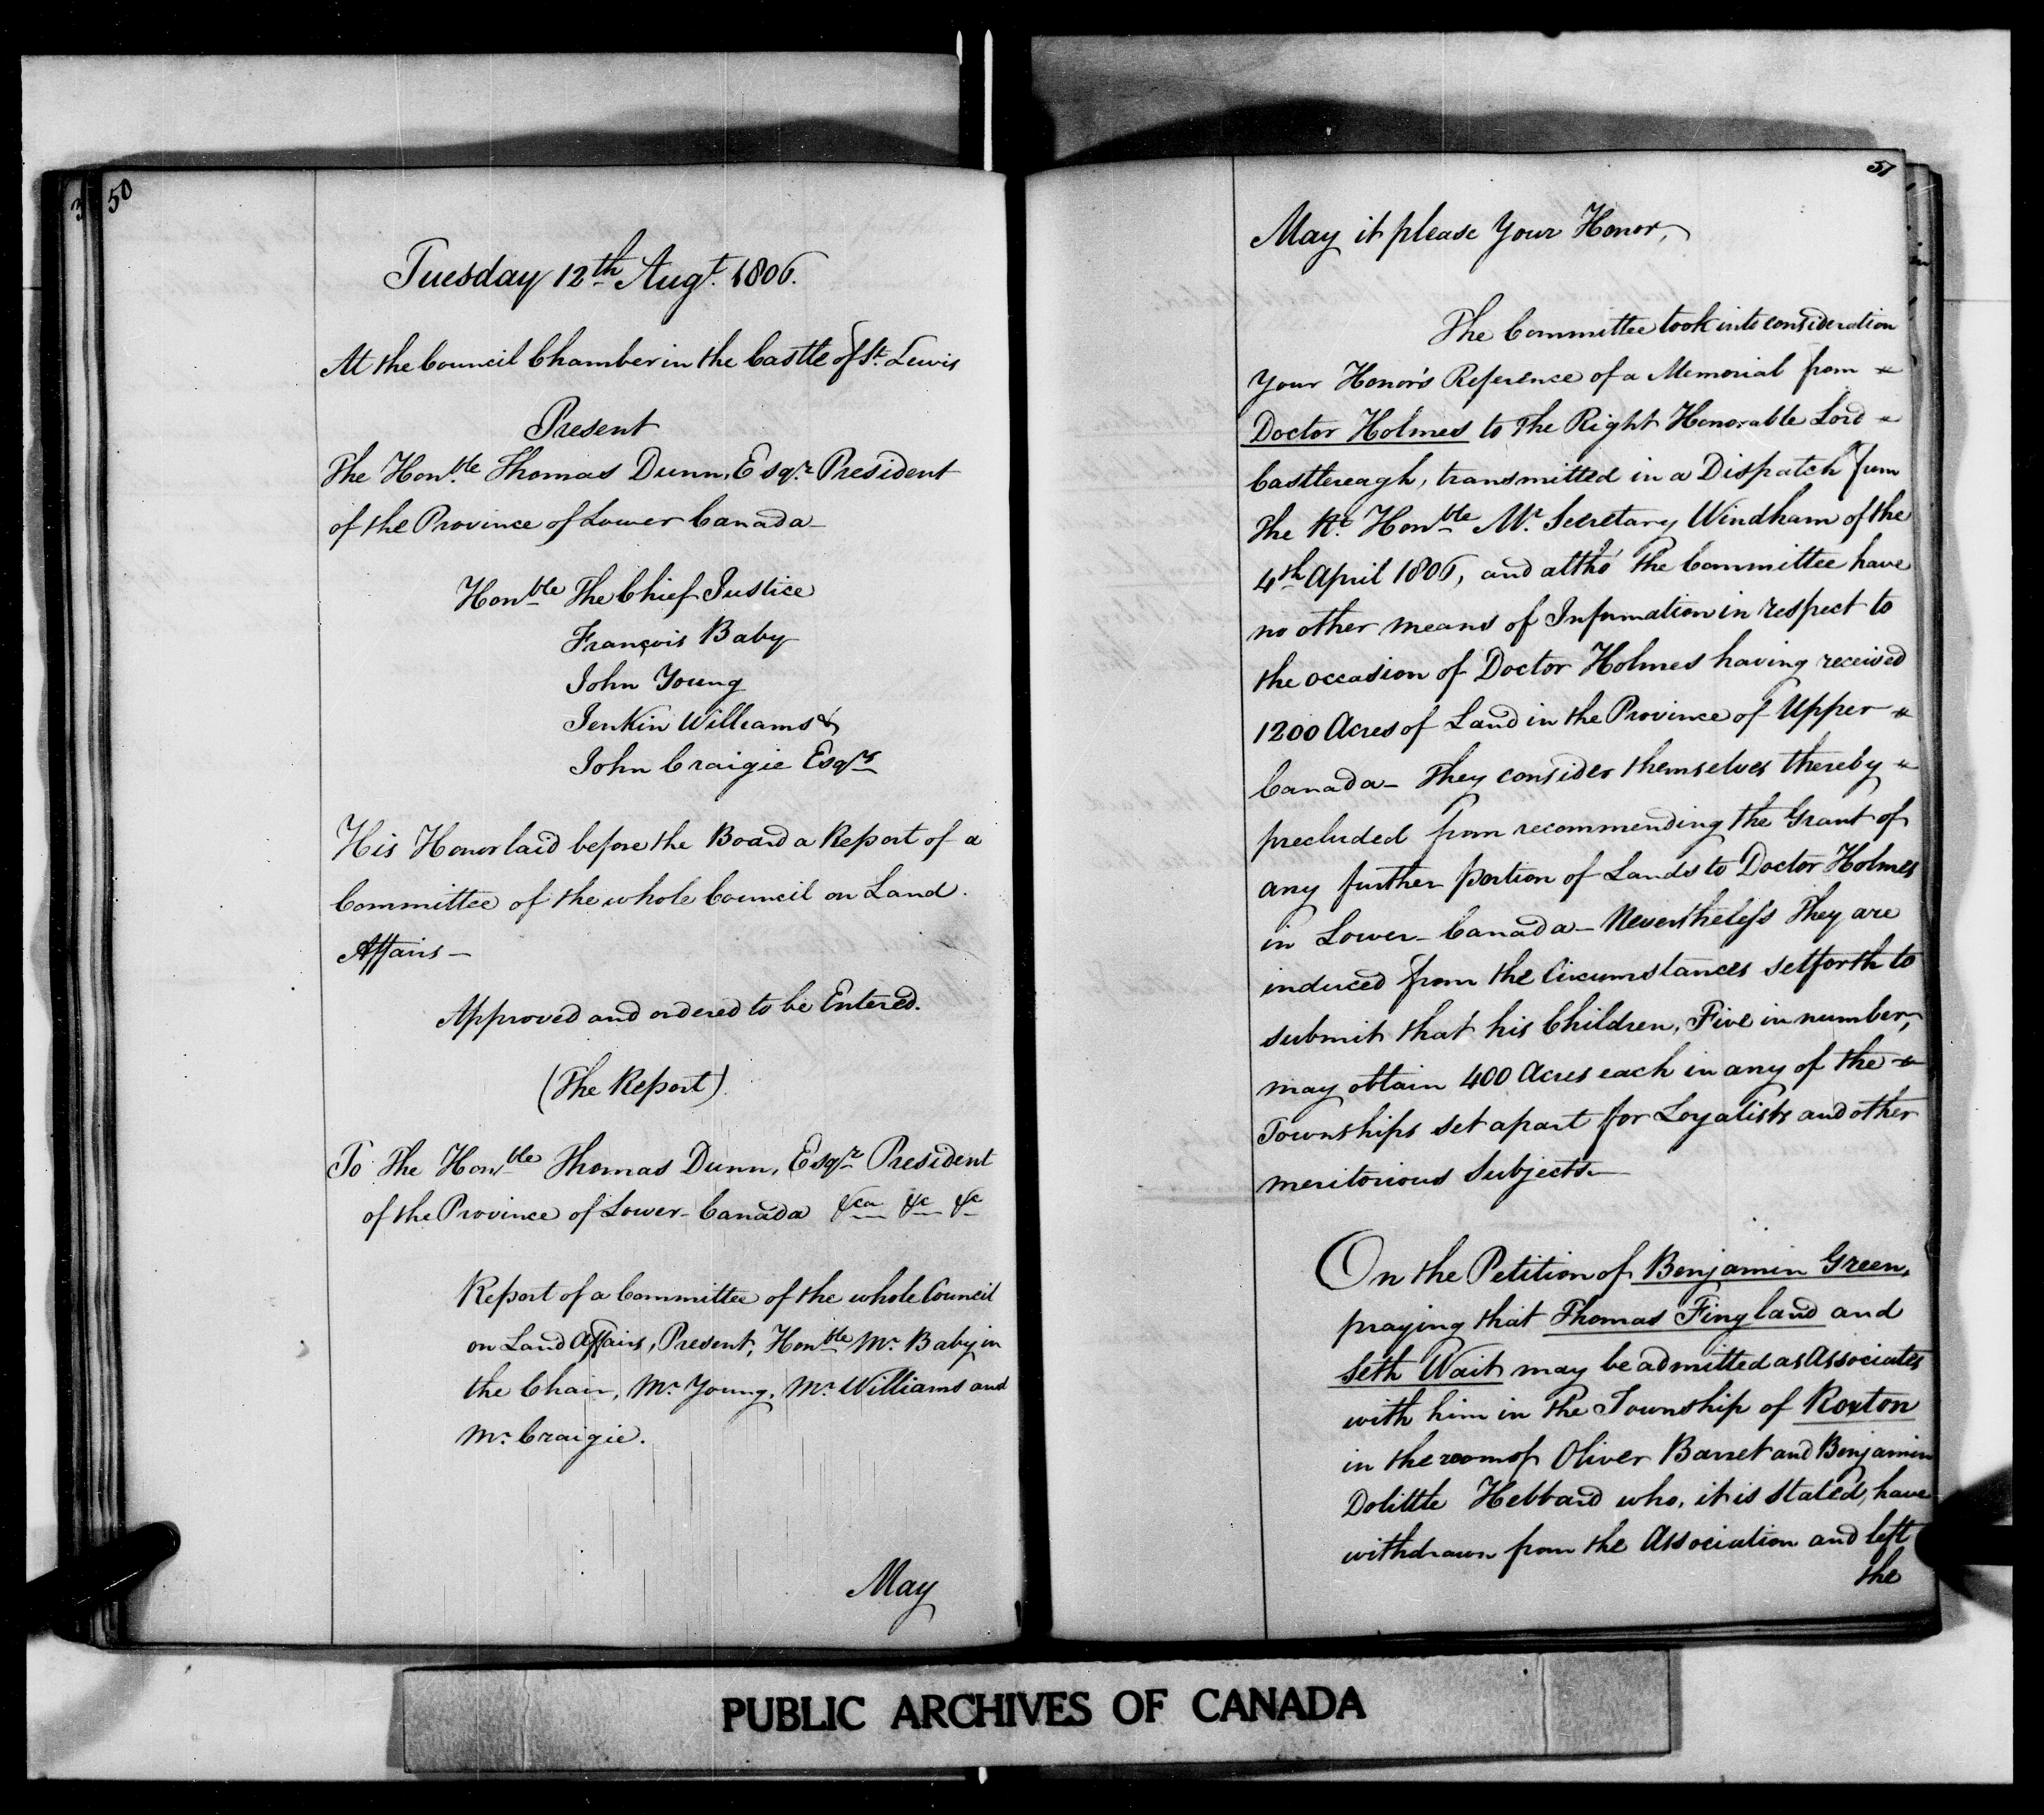 50
Tuesday 12th Augt. 1806.
At the Council Chamber in the Castle of St. Lewis
Present
The Honble Thomas Dunn, Esqr. President
of the Province of Lower Canada
Honble The Chief Justice
François Baby
John Young
Jenkin Williams &
John Craigie Esqrs
His Honor laid before the Board a Report of a
Committee of the whole Council on Land
Affairs —
Approved and ordered to be Entered.
(The Report)
To The Honble Thomas Dunn, Esqr. President
of the Province of Lower-Canada &ca &c &c
Report of a Committee of the whole Council
on Land Affairs, Present, Honble Mr. Baby in
the Chair, Mr. Young, Mr. Williams and
Mr. Craigie.
May
51
May it please Your Honor,
The Committee took into consideration
Your Honor's Reference of a Memorial from
Doctor Holmes to the Right Honorable Lord
Castlereagh, transmitted in a Dispatch from
The Rt. Honble Mr. Secretary Windham of the
4th April 1806, and altho' the Committee have
no other means of Information in respect to
the occasion of Doctor Holmes having received
1200 Acres of Land in the Province of Upper
Canada — They consider themselves thereby
precluded from recommending the Grant of
any further portion of Lands to Doctor Holmes
in Lower-Canada — Nevertheless They are
induced from the Circumstances setforth to
submit that his Children, Five in number,
may obtain 400 Acres each in any of the
Townships set apart for Loyalists and other
meritorious Subjects —
On the Petition of Benjamin Green,
praying that Thomas Fingland and
Seth Wait may be admitted as Associates
with him in the Township of Roxton
in the room of Oliver Barret and Benjamin
Dolittle Hebbard who, it is stated, have
withdrawn from the Association and left
the
PUBLIC ARCHIVES OF CANADA